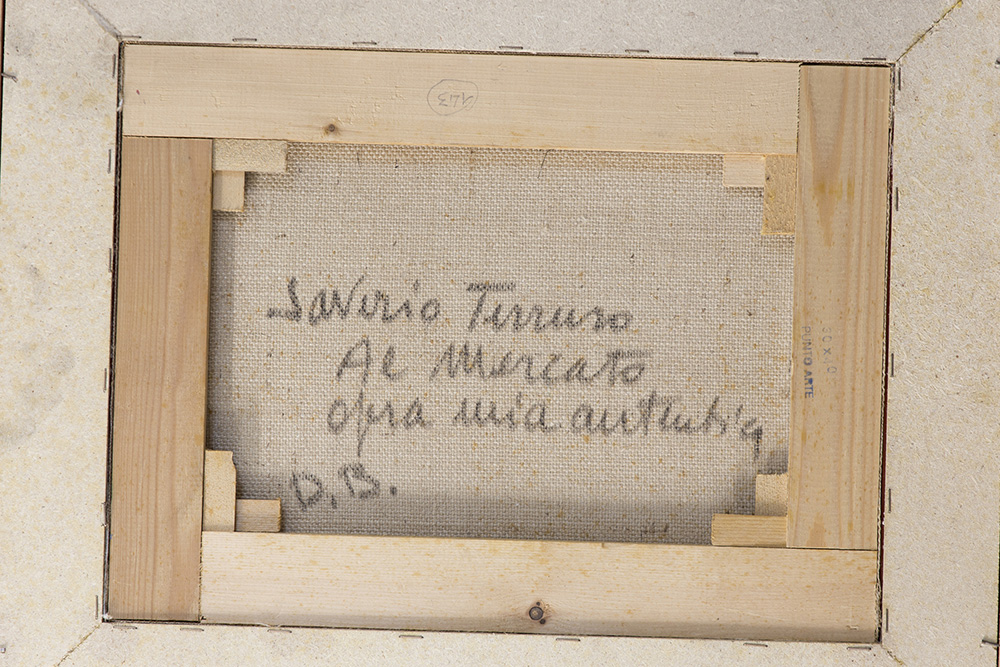 143
Saverio Terruso
Al Mercato
opra mia autentica
D.B.
PUNTO ARTE